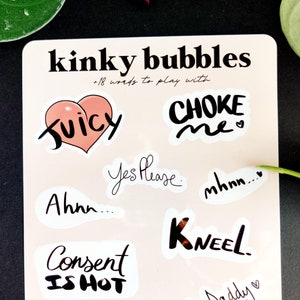 kinky bubbles
+18 words to play with
JUICY
CHOKE
me
Yes Please.
mhnn...
Ahnn...
KNEEL.
Consent
IS HOT
Daddy